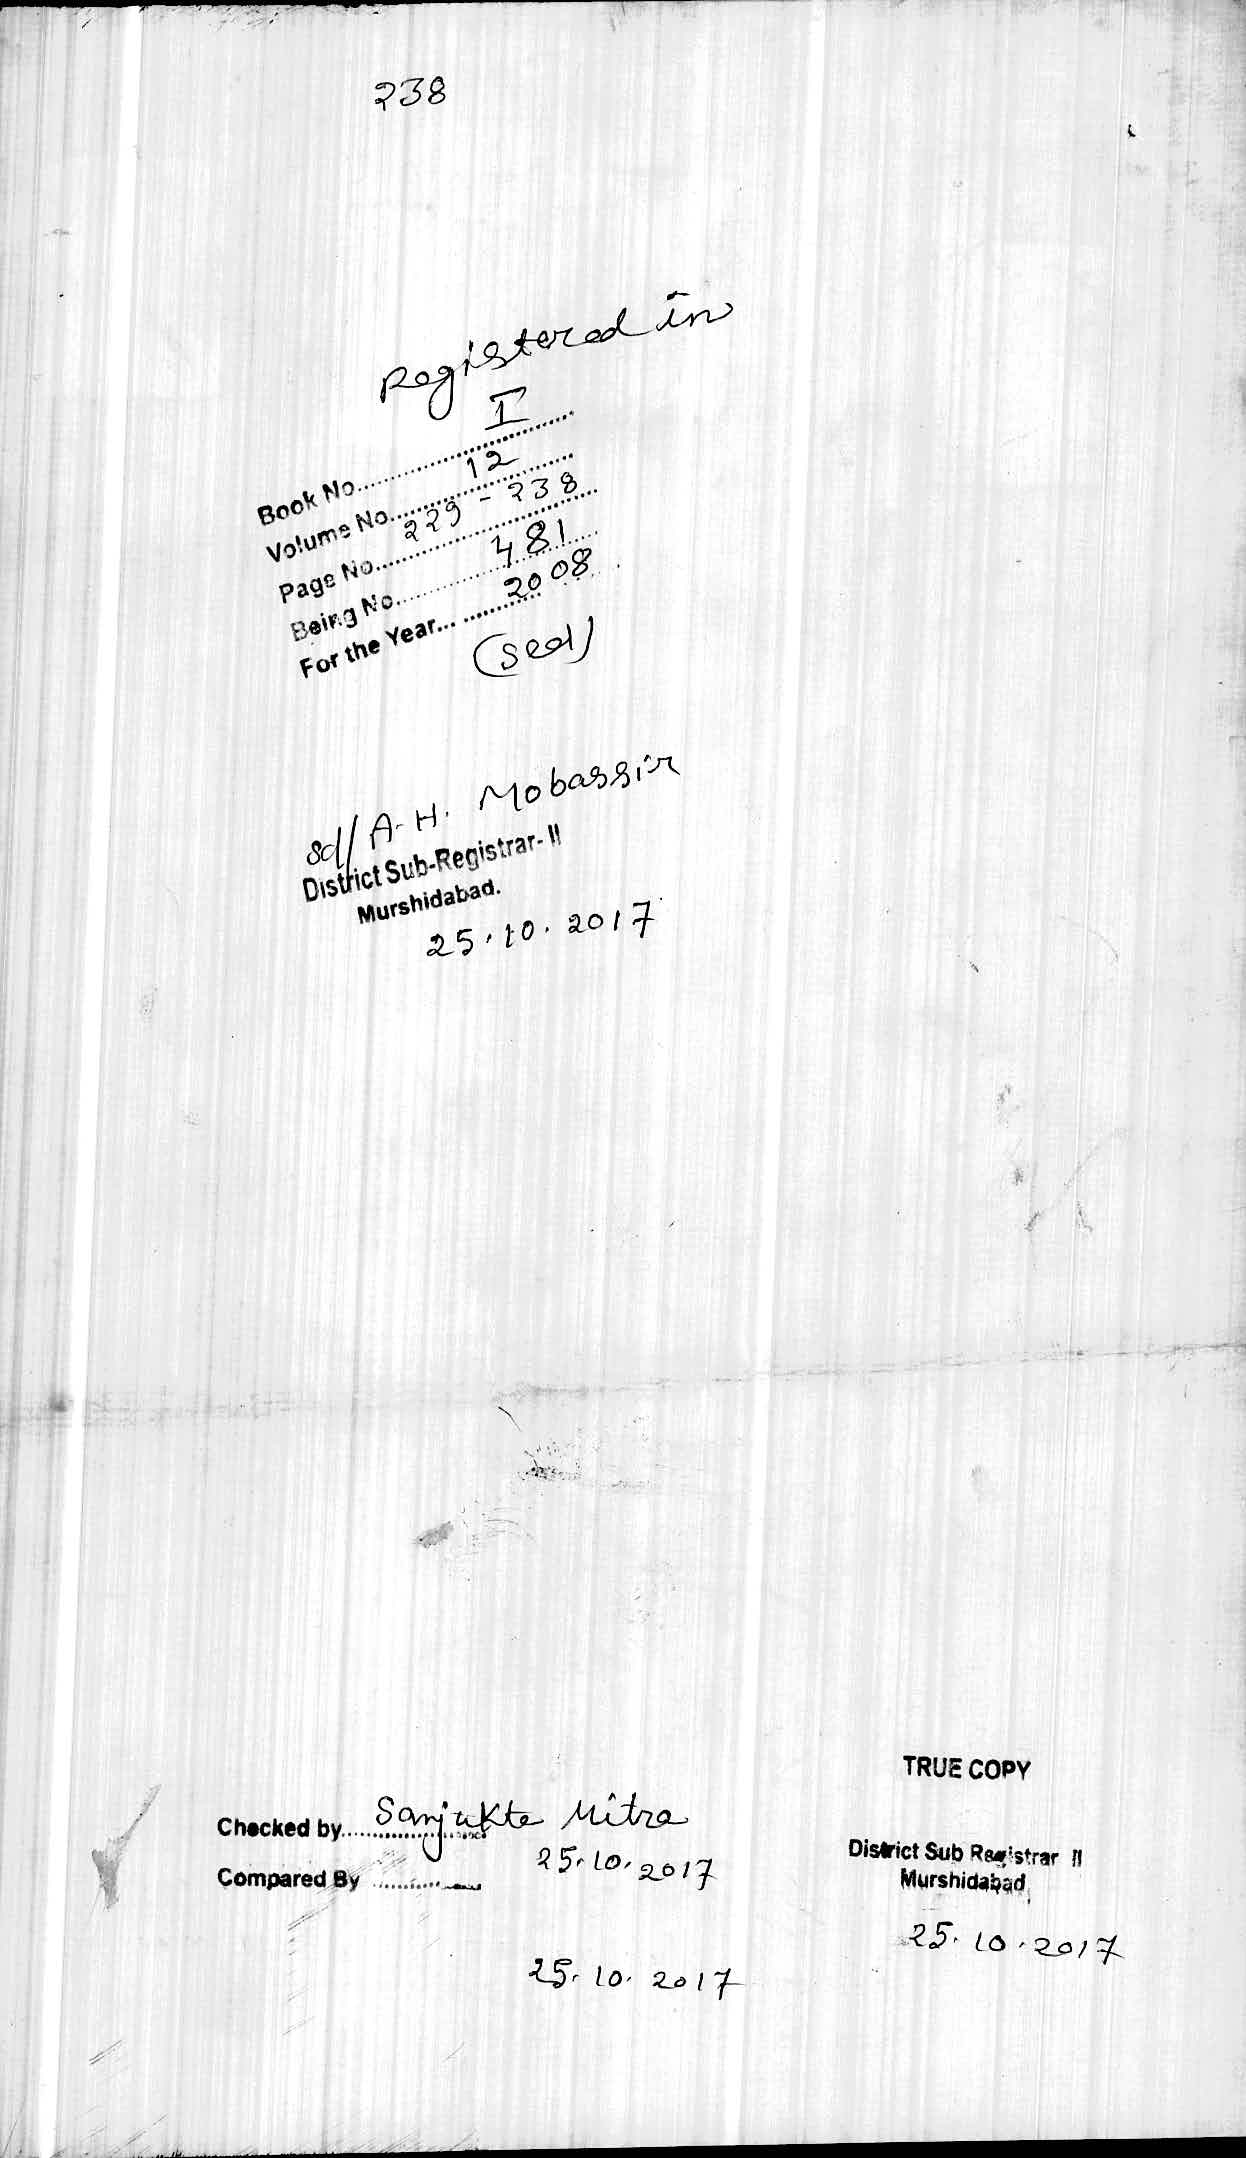 238
Registered in
Book No.......... I ..........
Volume No.......... 12 ..........
Page No.......... 229 - 238 ..........
Being No.......... 481 ..........
For the Year.......... 2008 ..........
(Seal)
sd/ A. H. Mobassir
District Sub-Registrar- II
Murshidabad.
25.10.2017
TRUE COPY
Checked by.......... Sanjukta Mitra
25.10.2017
Compared By ..........
District Sub Registrar II
Murshidabad
25.10.2017
25.10.2017